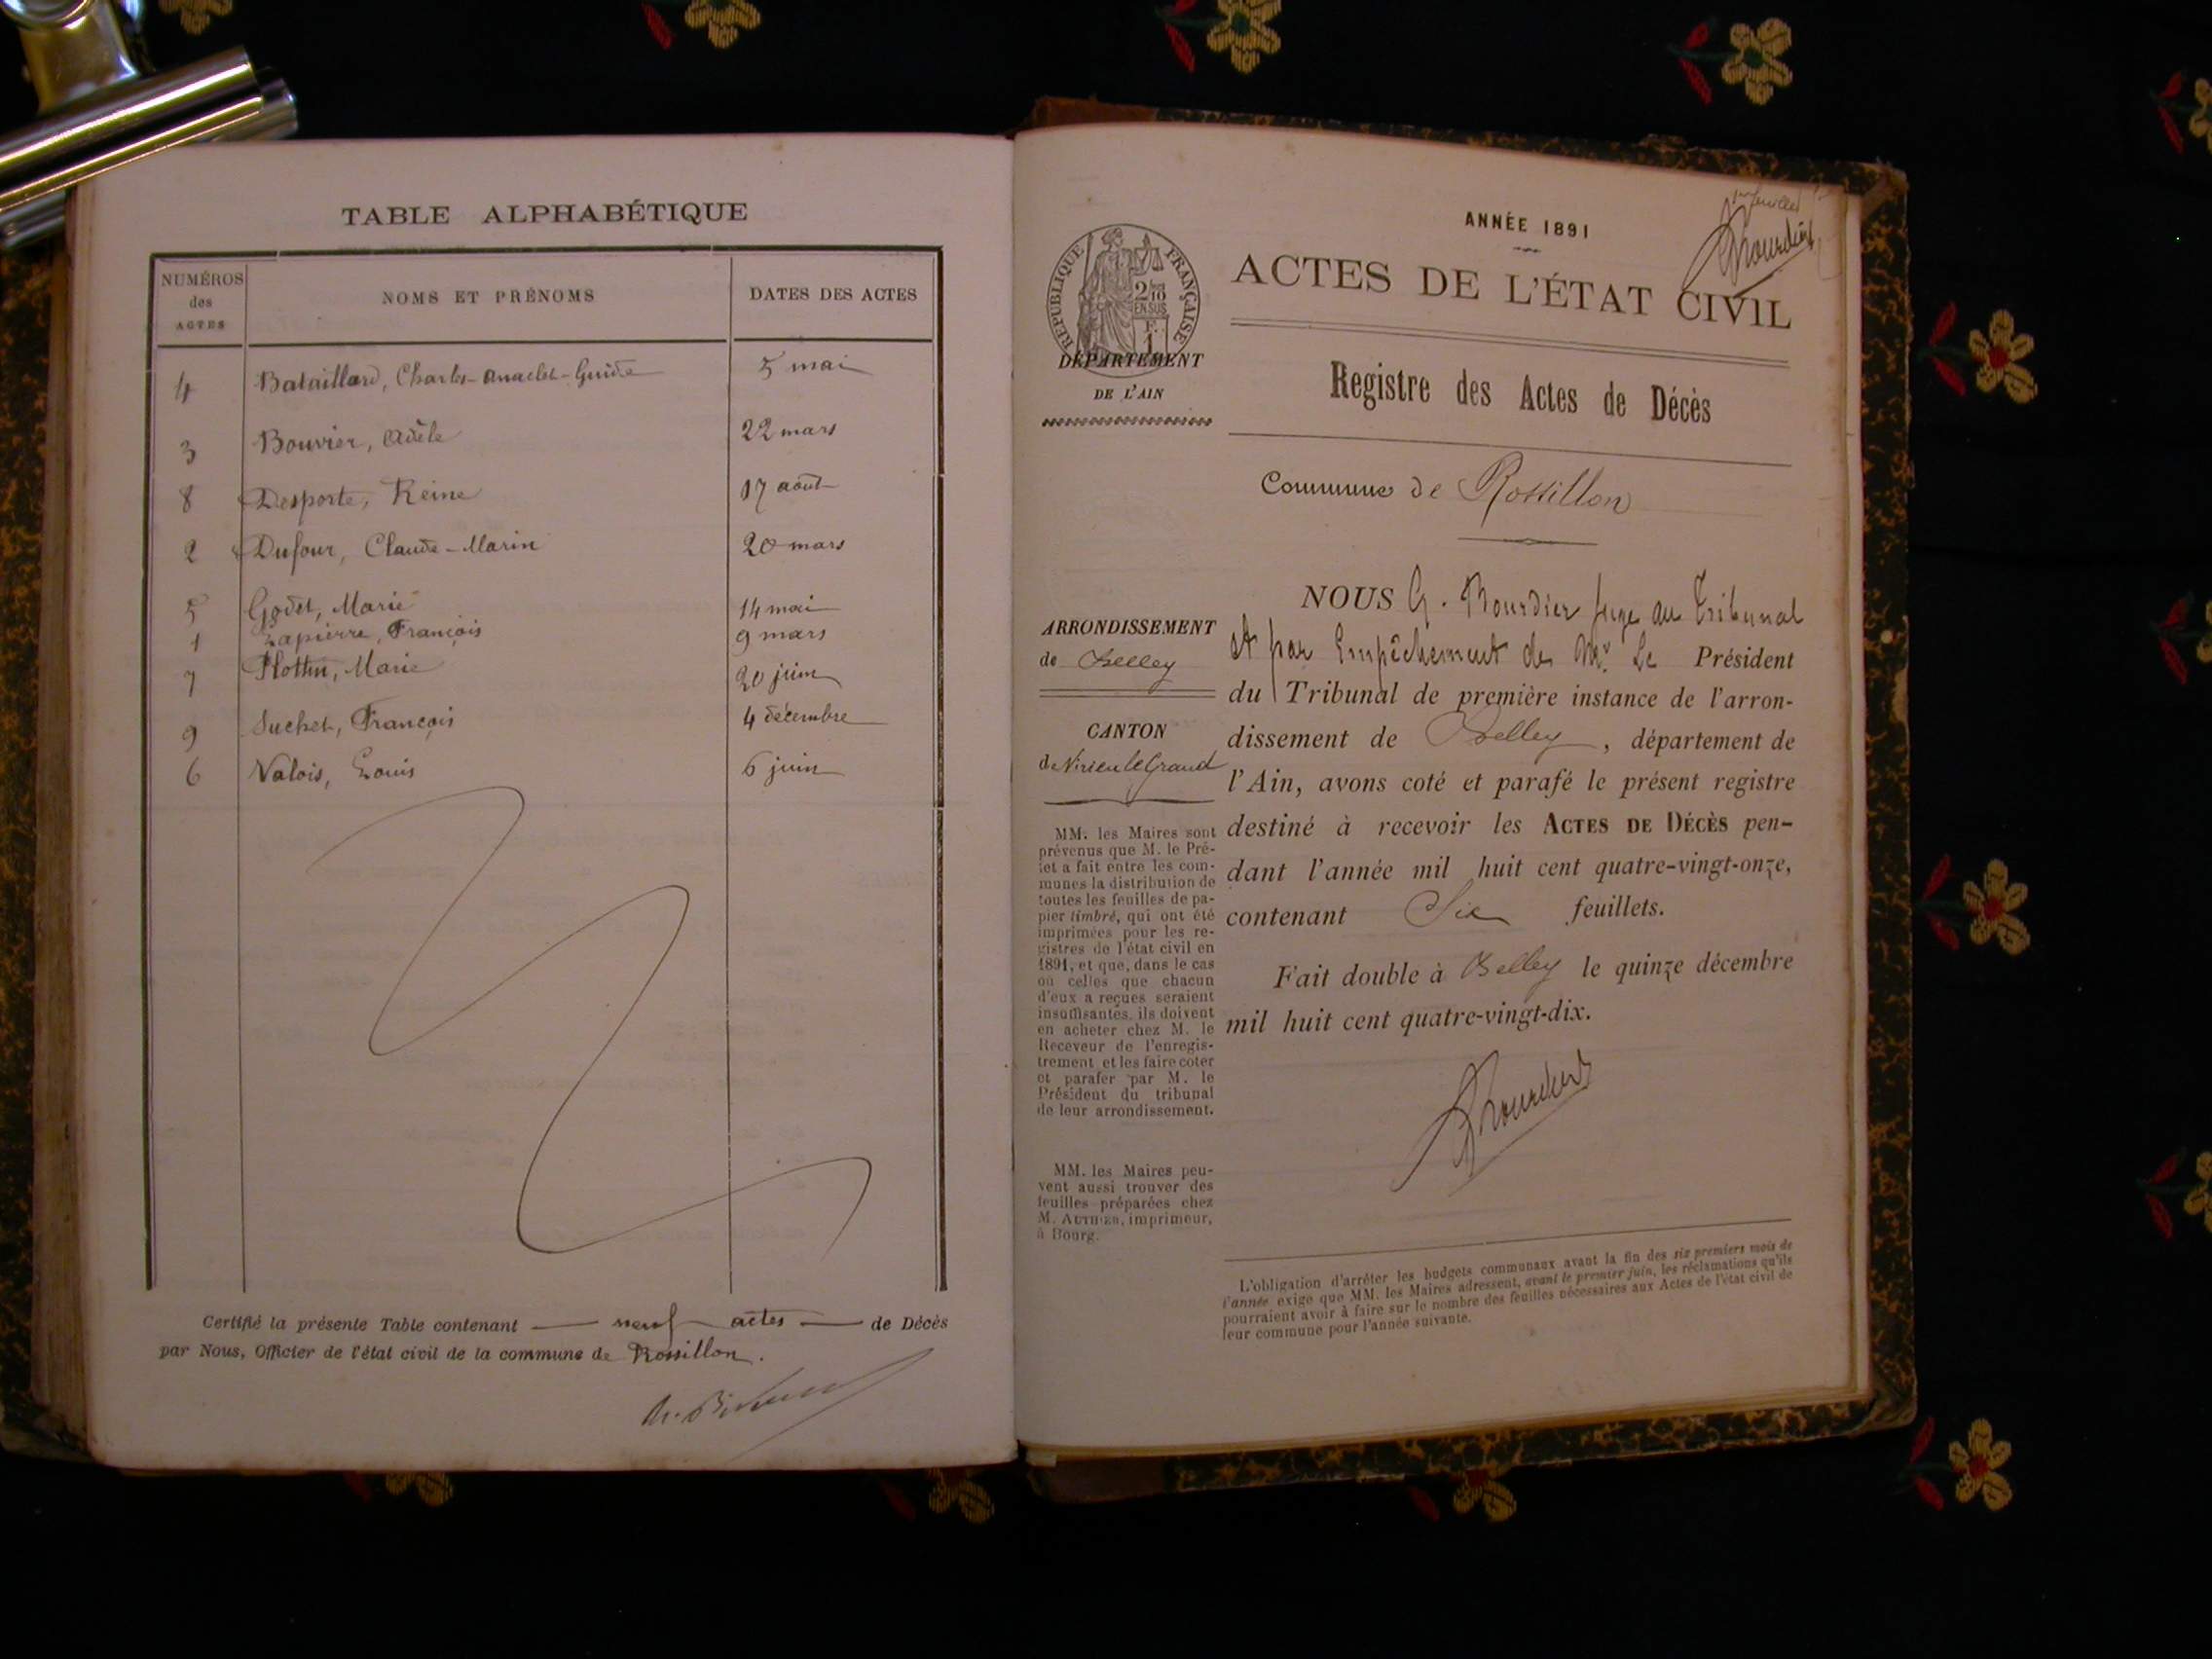 TABLE ALPHABÉTIQUE
NUMÉROS des ACTES NOMS ET PRÉNOMS DATES DES ACTES
4 Bataillard, Charles-Anaclet-Guide 5 mai
3 Bouvier, Adèle 22 mars
8 Desporte, Reine 17 août
2 Dufour, Claude-Marin 20 mars
5 Godet, Marie 14 mai
1 Lapierre, François 9 mars
7 Marie 20 juin
9 Suchet, François 4 décembre
6 Valois, Louis 6 juin
Certifié la présente Table contenant neuf actes de Décès
par Nous, Officier de l'état civil de la commune de Rossillon.
ANNÉE 1891
ACTES DE L'ÉTAT CIVIL
Registre des Actes de Décès
Commune de Rossillon
RÉPUBLIQUE FRANÇAISE
2/10
EN SUS
DÉPARTEMENT
DE L'AIN
ARRONDISSEMENT
de Belley
CANTON
de Virieu le Grand
MM. les Maires sont
prévenus que M. le Pré-
fet a fait entre les com-
munes la distribution de
toutes les feuilles de pa-
pier timbré, qui ont été
imprimées pour les re-
gistres de l'état civil en
1891, et que, dans le cas
où celles que chacun
d'eux a reçues seraient
insuffisantes, ils doivent
en acheter chez M. le
Receveur de l'enregis-
trement et les faire coter
et parafer par M. le
Président du tribunal
de leur arrondissement.
MM. les Maires peu-
vent aussi trouver des
feuilles préparées chez
M. AUTHIER, imprimeur,
à Bourg.
NOUS G. Bourdier Juge au Tribunal
et par Empêchement de Mr. Le Président
du Tribunal de première instance de l'arron-
dissement de Belley, département de
l'Ain, avons coté et parafé le présent registre
destiné à recevoir les ACTES DE DÉCÈS pen-
dant l'année mil huit cent quatre-vingt-onze,
contenant Six feuillets.
Fait double à Belley le quinze décembre
mil huit cent quatre-vingt-dix.
L'obligation d'arrêter les budgets communaux avant la fin des six premiers mois de
l'année exige que MM. les Maires adressent, avant le premier juin, les réclamations qu'ils
pourraient avoir à faire sur le nombre des feuilles nécessaires aux Actes de l'état civil de
leur commune pour l'année suivante.